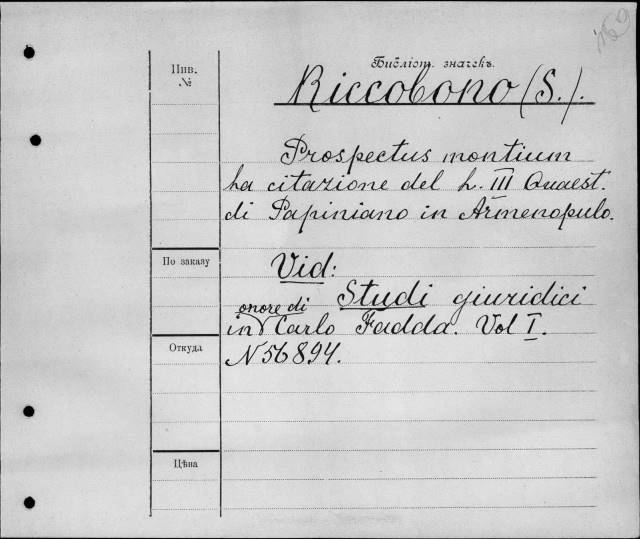 Инв.
№
Библіот. значекъ.
Riccobono (S.).
Prospectus montium
ha citazione del L. III Quaest.
di Papiniano in Armenopulo.
По заказу
Vid:
Studi giuridici
onore di
in Carlo Fadda. Vol I.
Откуда
N 56894.
Цѣна